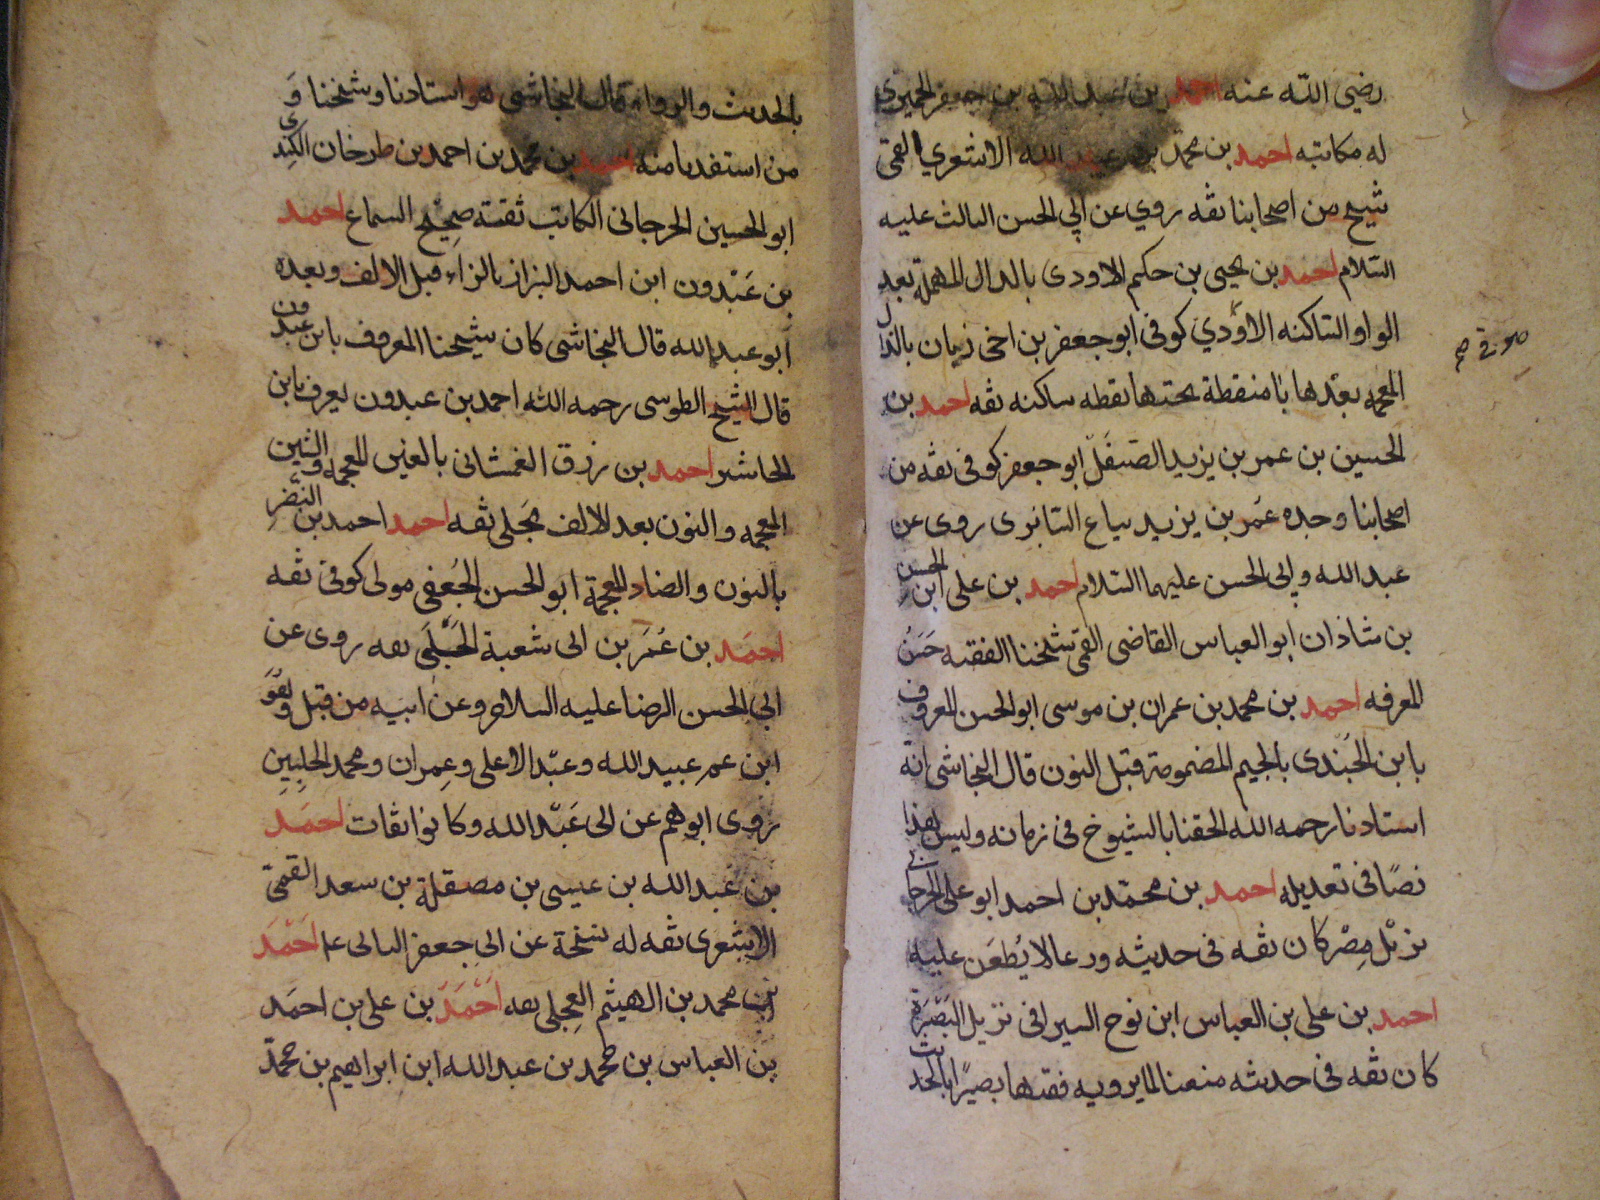 رضى الله عنه احمد بن عبد الله بن جعفر الحميرى
له مكاتبه احمد بن محمد بن عبيد الله الاشعري القمى
شيخ من اصحابنا ثقه روي عن ابي الحسن الثالث عليه
السلام احمد بن يحيى بن حكيم الاودى بالدال المهملة بعد
الواو الساكنه الاودي كوفى ابو جعفر بن اخى ذبيان بالذال
المعجمه بعدها با منقطة تحتها نقطه ساكنه ثقه احمد بن
الحسين بن عمر بن يزيد الصيقل ابو جعفر كوفى ثقه من
اصحابنا وجده عمر بن يزيد بياع السابرى روى عن
عبد الله وابى الحسن عليهما السلام احمد بن على ابن الحسن
بن شاذان ابو العباس القاضى القمى شيخنا الفقيه حسن
المعرفه احمد بن محمد بن عمران بن موسى ابو الحسن المعروف
بابن الجندى بالجيم المضمومة قبل النون قال النجاشى انه
استادنا رحمه الله الحقنا بالشيوخ فى زمانه وليس هذا
نصا فى تعديله احمد بن محمد بن احمد ابو على الجرجانى
نزيل مصر كان ثقه فى حديثه ورعا لا يطعن عليه
احمد بن على بن العباس ابن نوح السيرافى نزيل البصرة
كان ثقه فى حديثه متقنا لما يرويه فقيها بصيرا بالحديث
بالحديث والرواية قال النجاشى هو استادنا وشيخنا و
من استفدنا منه احمد بن محمد بن احمد بن طرخان الكندى
ابو الحسين الجرجانى الكاتب ثقة صحيح السماع احمد
بن عبدون ابن احمد البزاز بالزاء قبل الالف وبعده
ابو عبد الله قال النجاشى كان شيخنا المعروف بابن عبدون
قال الشيخ الطوسى رحمه الله احمد بن عبدون يعرف بابن
الحاشر احمد بن رزق الغمشانى بالغين المعجمه والشين
المعجمه والنون بعد الالف بجلى ثقه احمد احمد بن النضر
بالنون والضاد المعجمة ابو الحسن الجعفى مولى كوفى ثقه
احمد بن عمر بن ابى شعبة الحلبى ثقه روى عن
ابى الحسن الرضا عليه السلام وعن ابيه من قبل وهو
ابن عم عبيد الله وعبد الاعلى وعمران ومحمد الحلبيين
روى ابوهم عن ابى عبد الله وكانوا ثقات احمد
بن عبد الله بن عيسى بن مصقلة بن سعد القمى
الاشعرى ثقه له نسخة عن ابى جعفر الثانى عل احمد
بن محمد بن الهيثم العجلى ثقه احمد بن على بن احمد
بن العباس بن محمد بن عبد الله ابن ابراهيم بن محمد